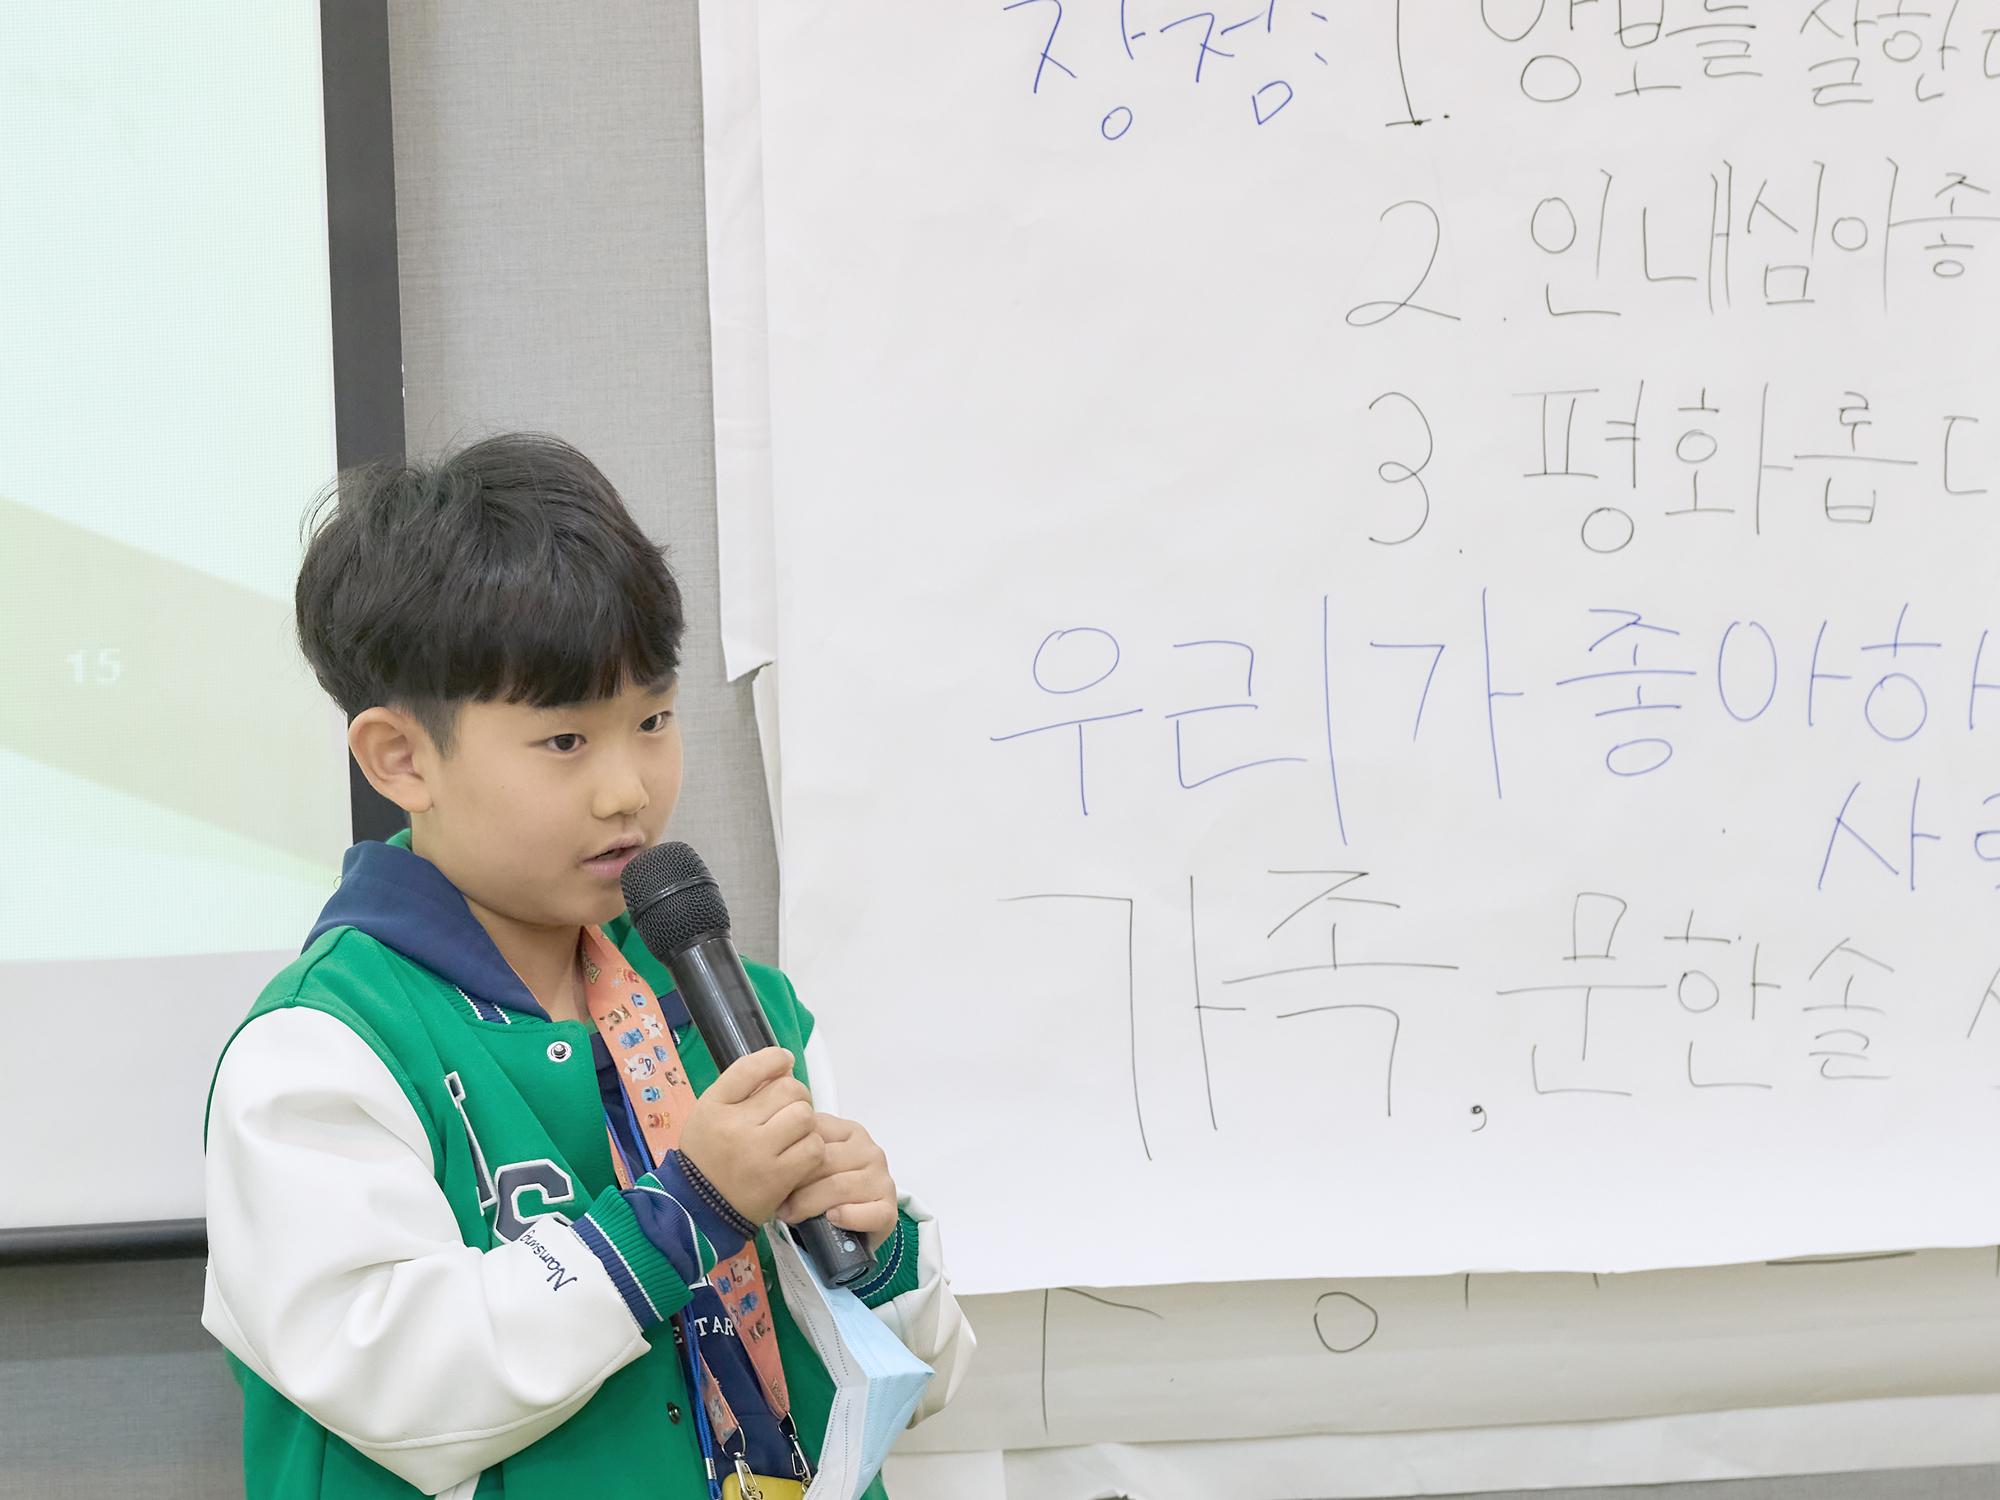 장점: 1. 양보를 잘한다
2. 인내심이 좋
3. 평화롭다
우리가 좋아하
사
가족, 문한솔
15
Namsung
TAR